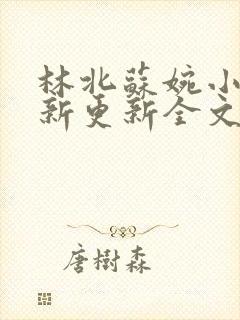 林北蘇婉小
新更新全文
唐樹森